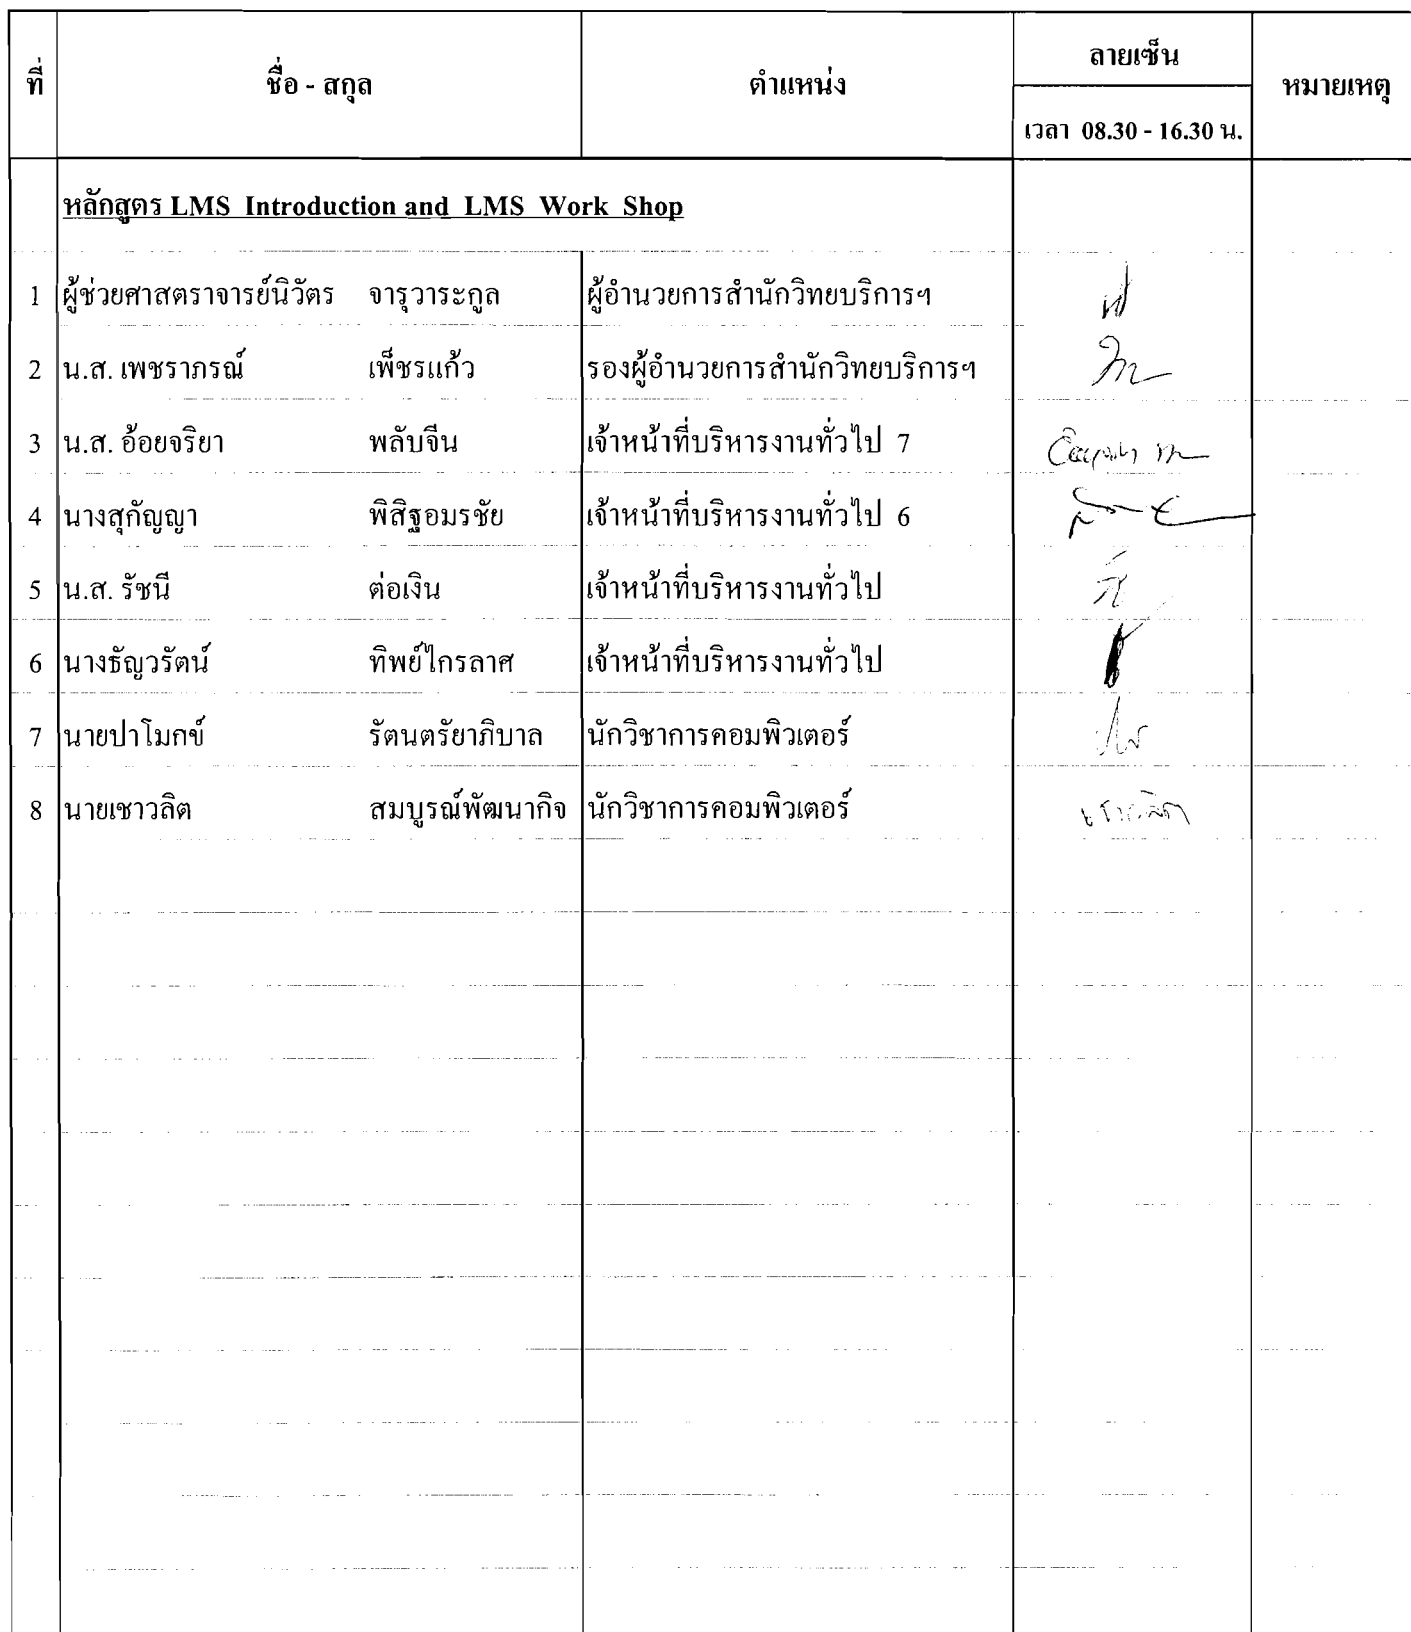 ที่ ชื่อ - สกุล ตำแหน่ง ลายเซ็น หมายเหตุ
เวลา 08.30 - 16.30 น.
หลักสูตร LMS Introduction and LMS Work Shop
1 ผู้ช่วยศาสตราจารย์นิวัตร จารุวาระกูล ผู้อำนวยการสำนักวิทยบริการฯ
2 น.ส. เพชราภรณ์ เพ็ชรแก้ว รองผู้อำนวยการสำนักวิทยบริการฯ
3 น.ส. อ้อยจริยา พลับจีน เจ้าหน้าที่บริหารงานทั่วไป 7
4 นางสุกัญญา พิสิฐอมรชัย เจ้าหน้าที่บริหารงานทั่วไป 6
5 น.ส. รัชนี ต่อเงิน เจ้าหน้าที่บริหารงานทั่วไป
6 นางธัญวรัตน์ ทิพย์ไกรลาศ เจ้าหน้าที่บริหารงานทั่วไป
7 นายปาโมกข์ รัตนตรัยาภิบาล นักวิชาการคอมพิวเตอร์
8 นายเชาวลิต สมบูรณ์พัฒนากิจ นักวิชาการคอมพิวเตอร์ เชาวลิต